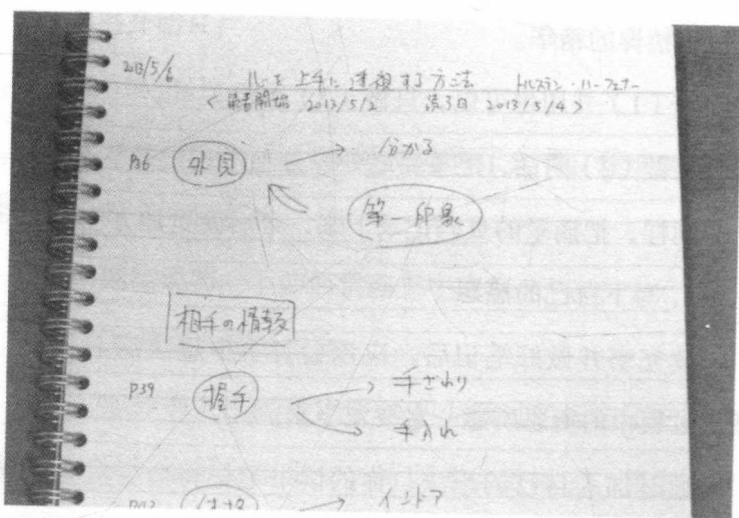 2013/5/6
心を上手に透視する方法 トルステン・ハーフェナー
<読書開始 2013/5/2 読了日 2013/5/4>
P36 外見 → 分かる
第一印象
相手の情報
P39 握手 → 手ざわり
→ 手入れ
→ インドア